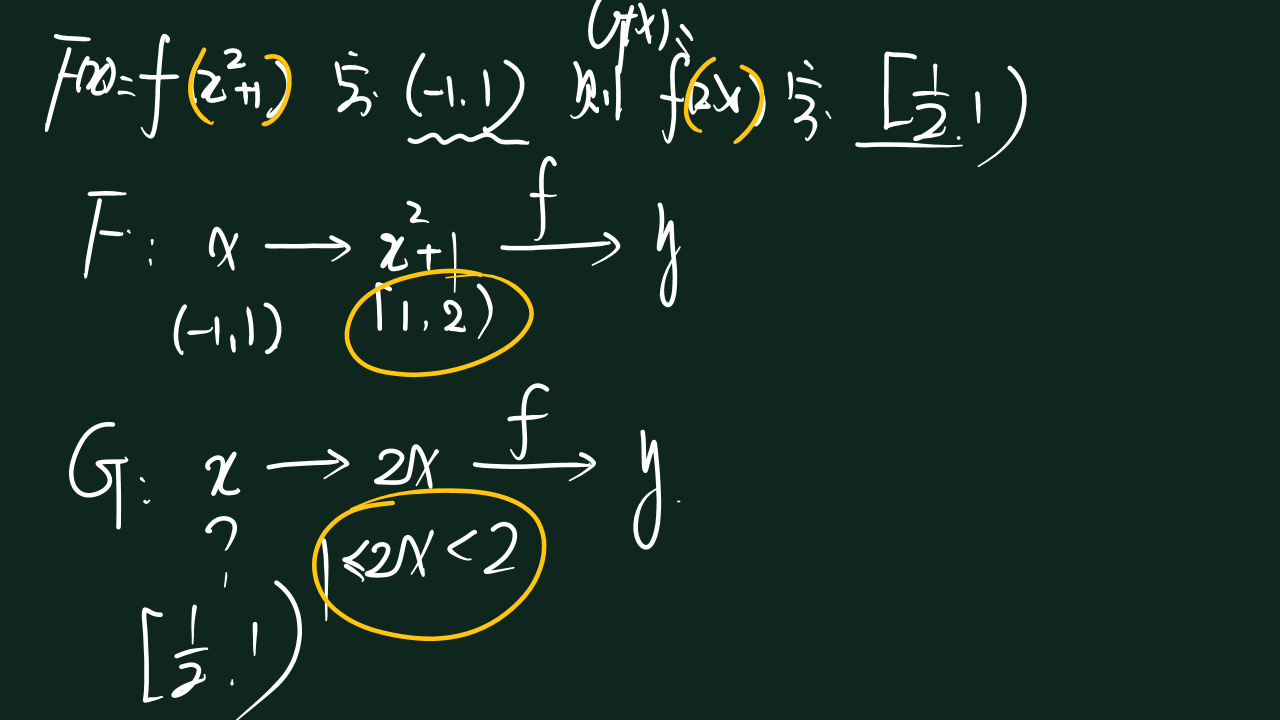 G(x)=
F(x)=f(x²+1) (-1,1) 则 f(2x) [1/2,1)
F: x → x²+1 f→ y
(-1,1) [1,2)
G: x → 2x f→ y
? 1≤2x<2
[1/2,1)